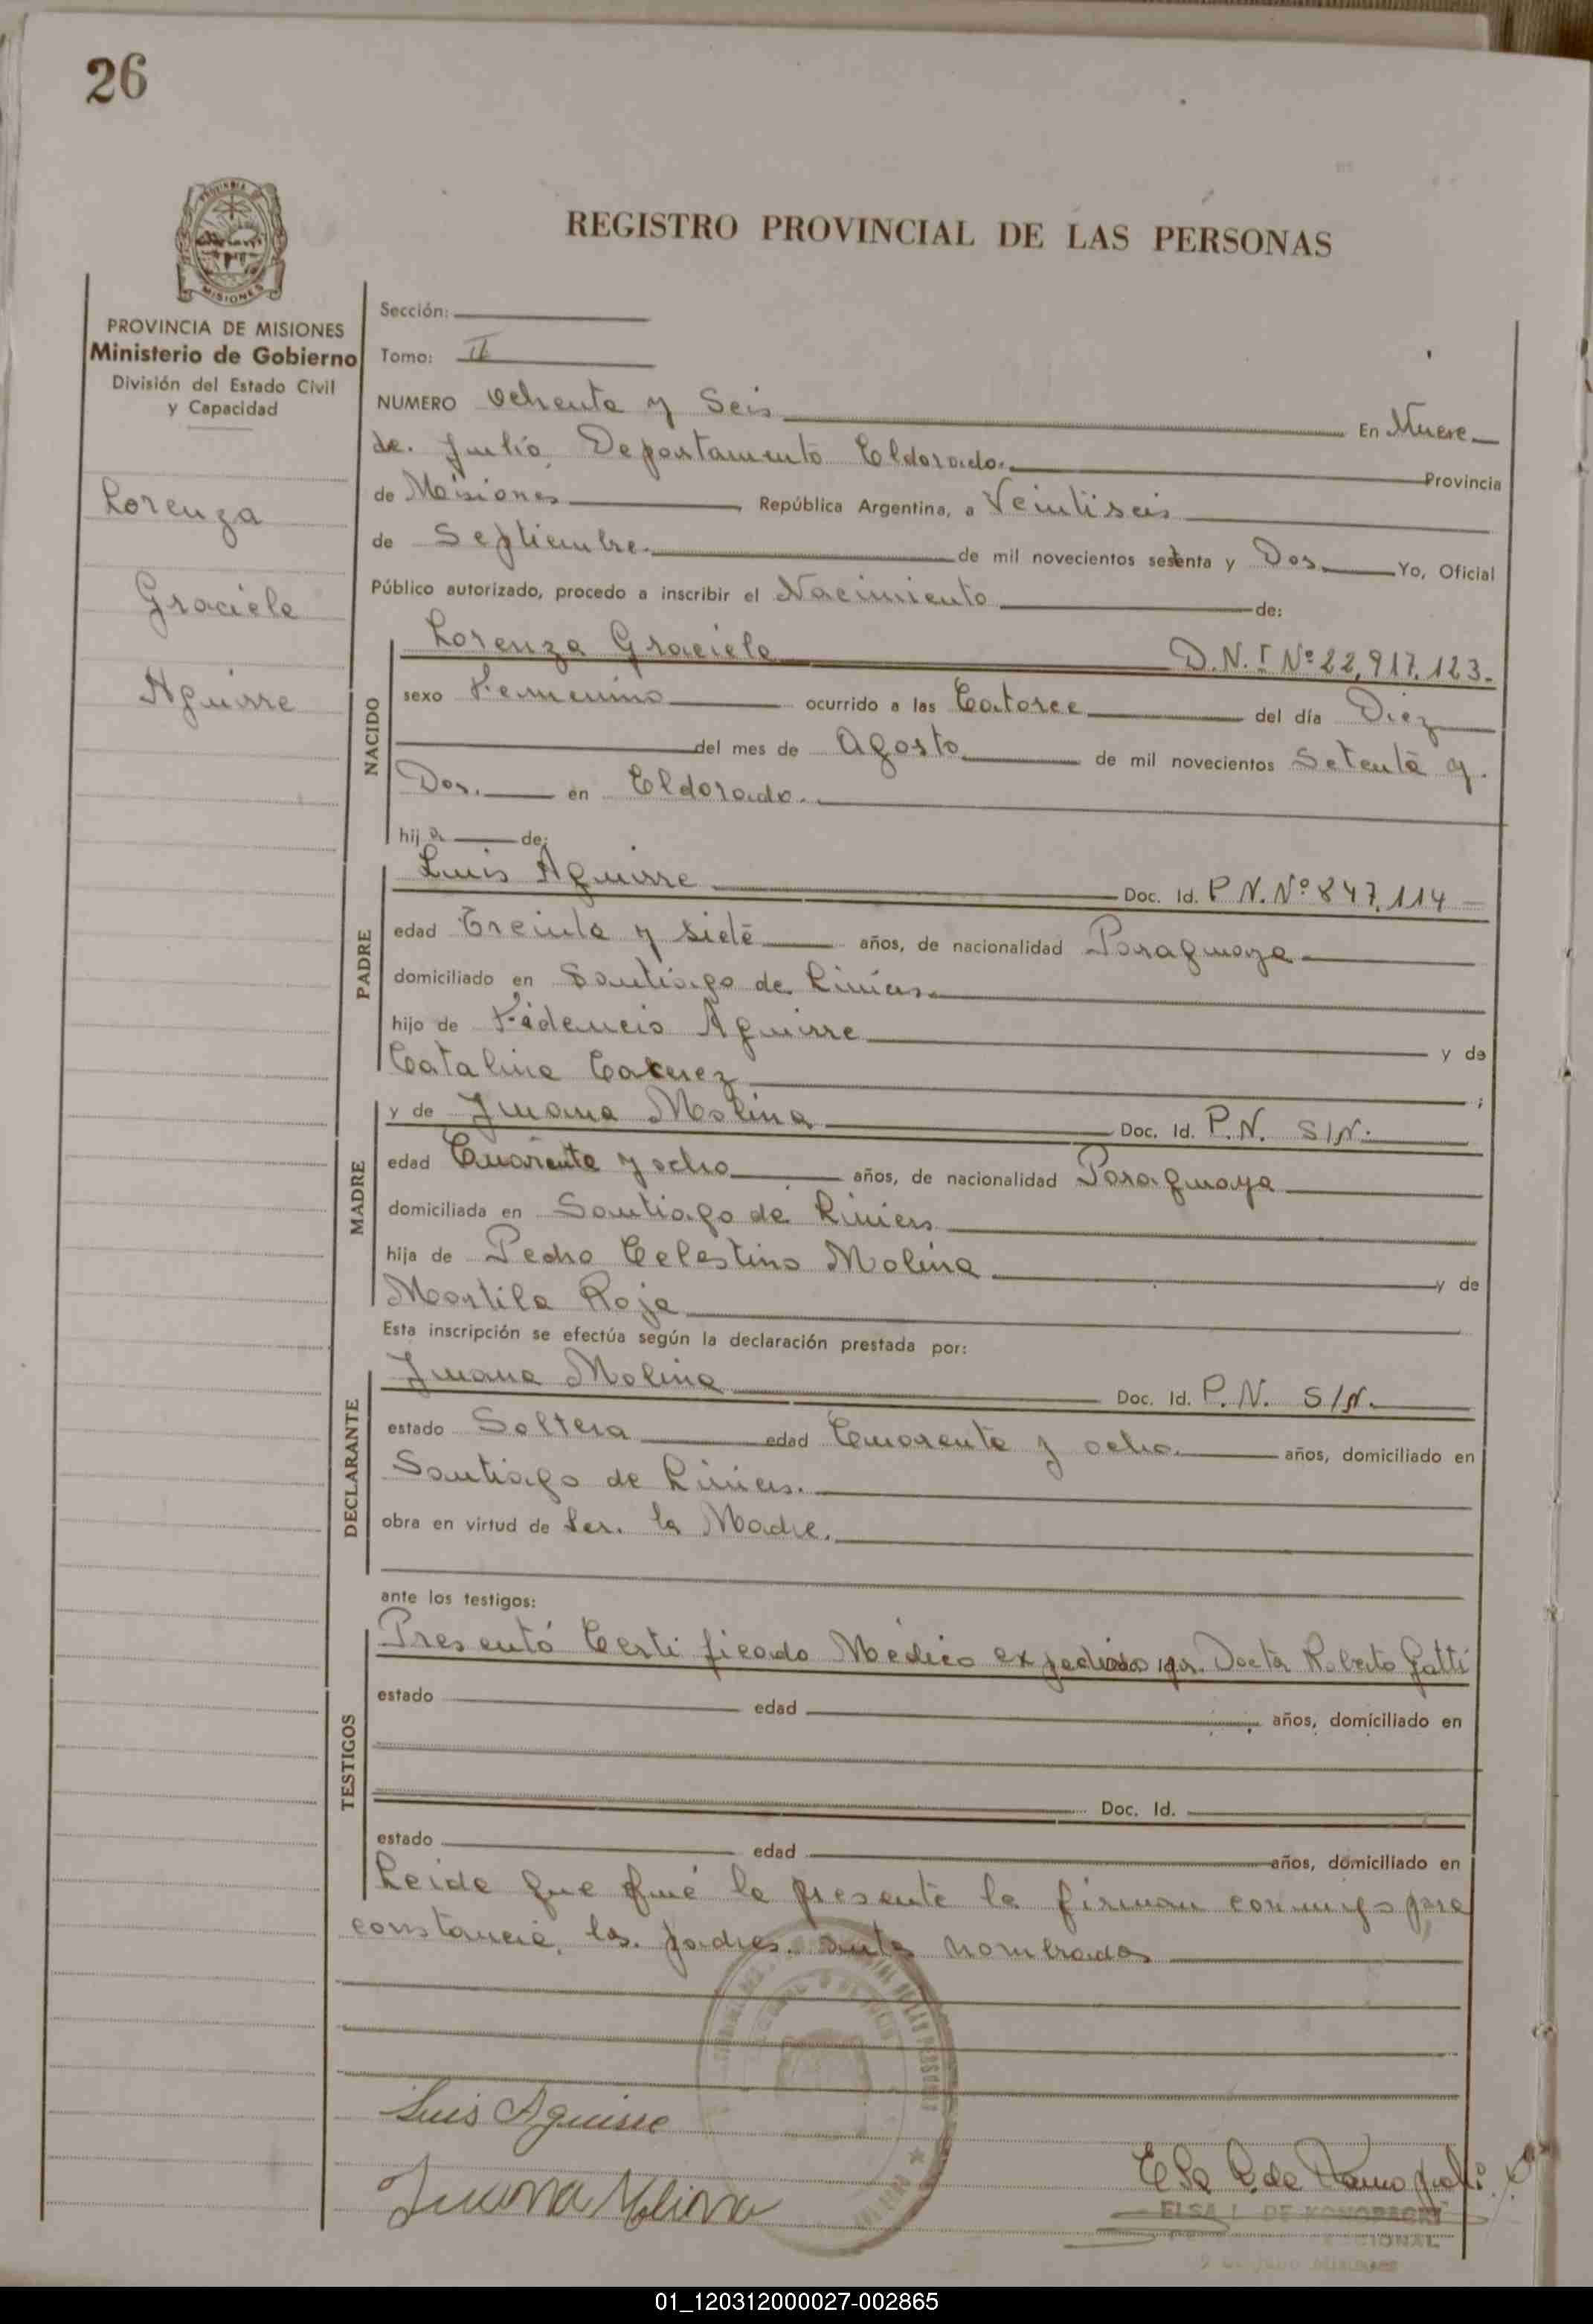 26
PROVINCIA DE
MISIONES
REGISTRO PROVINCIAL DE LAS PERSONAS
PROVINCIA DE MISIONES
Ministerio de Gobierno
División del Estado Civil
y Capacidad
Lorenza
Graciela
Aguirre
Sección:
Tomo: II
NUMERO Ochenta y Seis En Nueve
de Julio, Departamento Eldorado. Provincia
de Misiones República Argentina, a Veintiseis
de Septiembre. de mil novecientos setenta y Dos. Yo, Oficial
Público autorizado, procedo a inscribir el Nacimiento de:
NACIDO
Lorenza Graciela D.N.I Nº 22,917.123.
sexo Femenino ocurrido a las Catorce del día Diez
del mes de Agosto de mil novecientos Setenta y
Dos. en Eldorado.
hija de:
PADRE
Luis Aguirre Doc. Id. P.N. Nº 847.114
edad Treinta y siete años, de nacionalidad Paraguaya
domiciliado en Santiago de Liniers.
hijo de Fidencio Aguirre y de
Catalina Cacerez ;
MADRE
y de Juana Molina Doc. Id. P.N. S/N.
edad Cuarenta y ocho años, de nacionalidad Paraguaya
domiciliada en Santiago de Liniers
hija de Pedro Celestino Molina y de
Martila Roja
Esta inscripción se efectúa según la declaración prestada por:
DECLARANTE
Juana Molina Doc. Id. P.N. S/N.
estado Soltera edad Cuarenta y ocho. años, domiciliado en
Santiago de Liniers.
obra en virtud de Ser. la Madre.
ante los testigos:
TESTIGOS
Presentó Certificado Médico expedido por. Doctor Roberto Gatti
estado edad años, domiciliado en
Doc. Id.
estado edad años, domiciliado en
Leida que fué la presente la firman conmigo para
constancia, los padres. antes nombrados
Luis Aguirre
Juana Molina
ELSA L. DE KONOPACKI
01_120312000027-002865